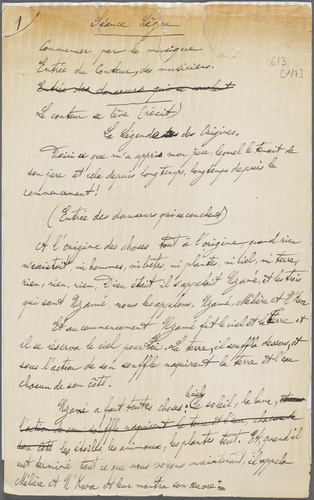 1
Séance Nègre
Commencer par la musique
Entrée du Conteur, des musiciens.
Entrée des danseurs qui se couchent
Le conteur se lève (récit)
613
[1/7]
La légende des Origines.
Voici ce que m'a appris mon père, lequel le tenait de
son père et cela depuis longtemps, longtemps depuis le
commencement!
(Entrée des danseurs qui se couchent)
A l'origine des choses tout à l'origine, quand rien
n'existait, ni hommes, ni bêtes, ni plantes, ni ciel, ni terre,
rien, rien, rien, Dieu était il s'appelait Nzamé, et les trois
qui sont Nzamé, nous les appelons, Nzamé, Mébère et N'Kwa
Et au commencement Nzamé fit le ciel et la Terre et
il se réserva le ciel pour lui. La terre, il souffla dessus, et
sous l'action de son souffle naquirent la terre et l'eau
chacun de son côté.
Nzamé a fait toutes choses: le ciel, le soleil, la lune,
l'action de son souffle naquirent la terre et l'eau, chacun de
son côté les étoiles, les animaux, les plantes tout. Et quand il
eût terminé tout ce que nous voyons maintenant, il appela
Mébère et N'Kwa et leur montra son œuvre